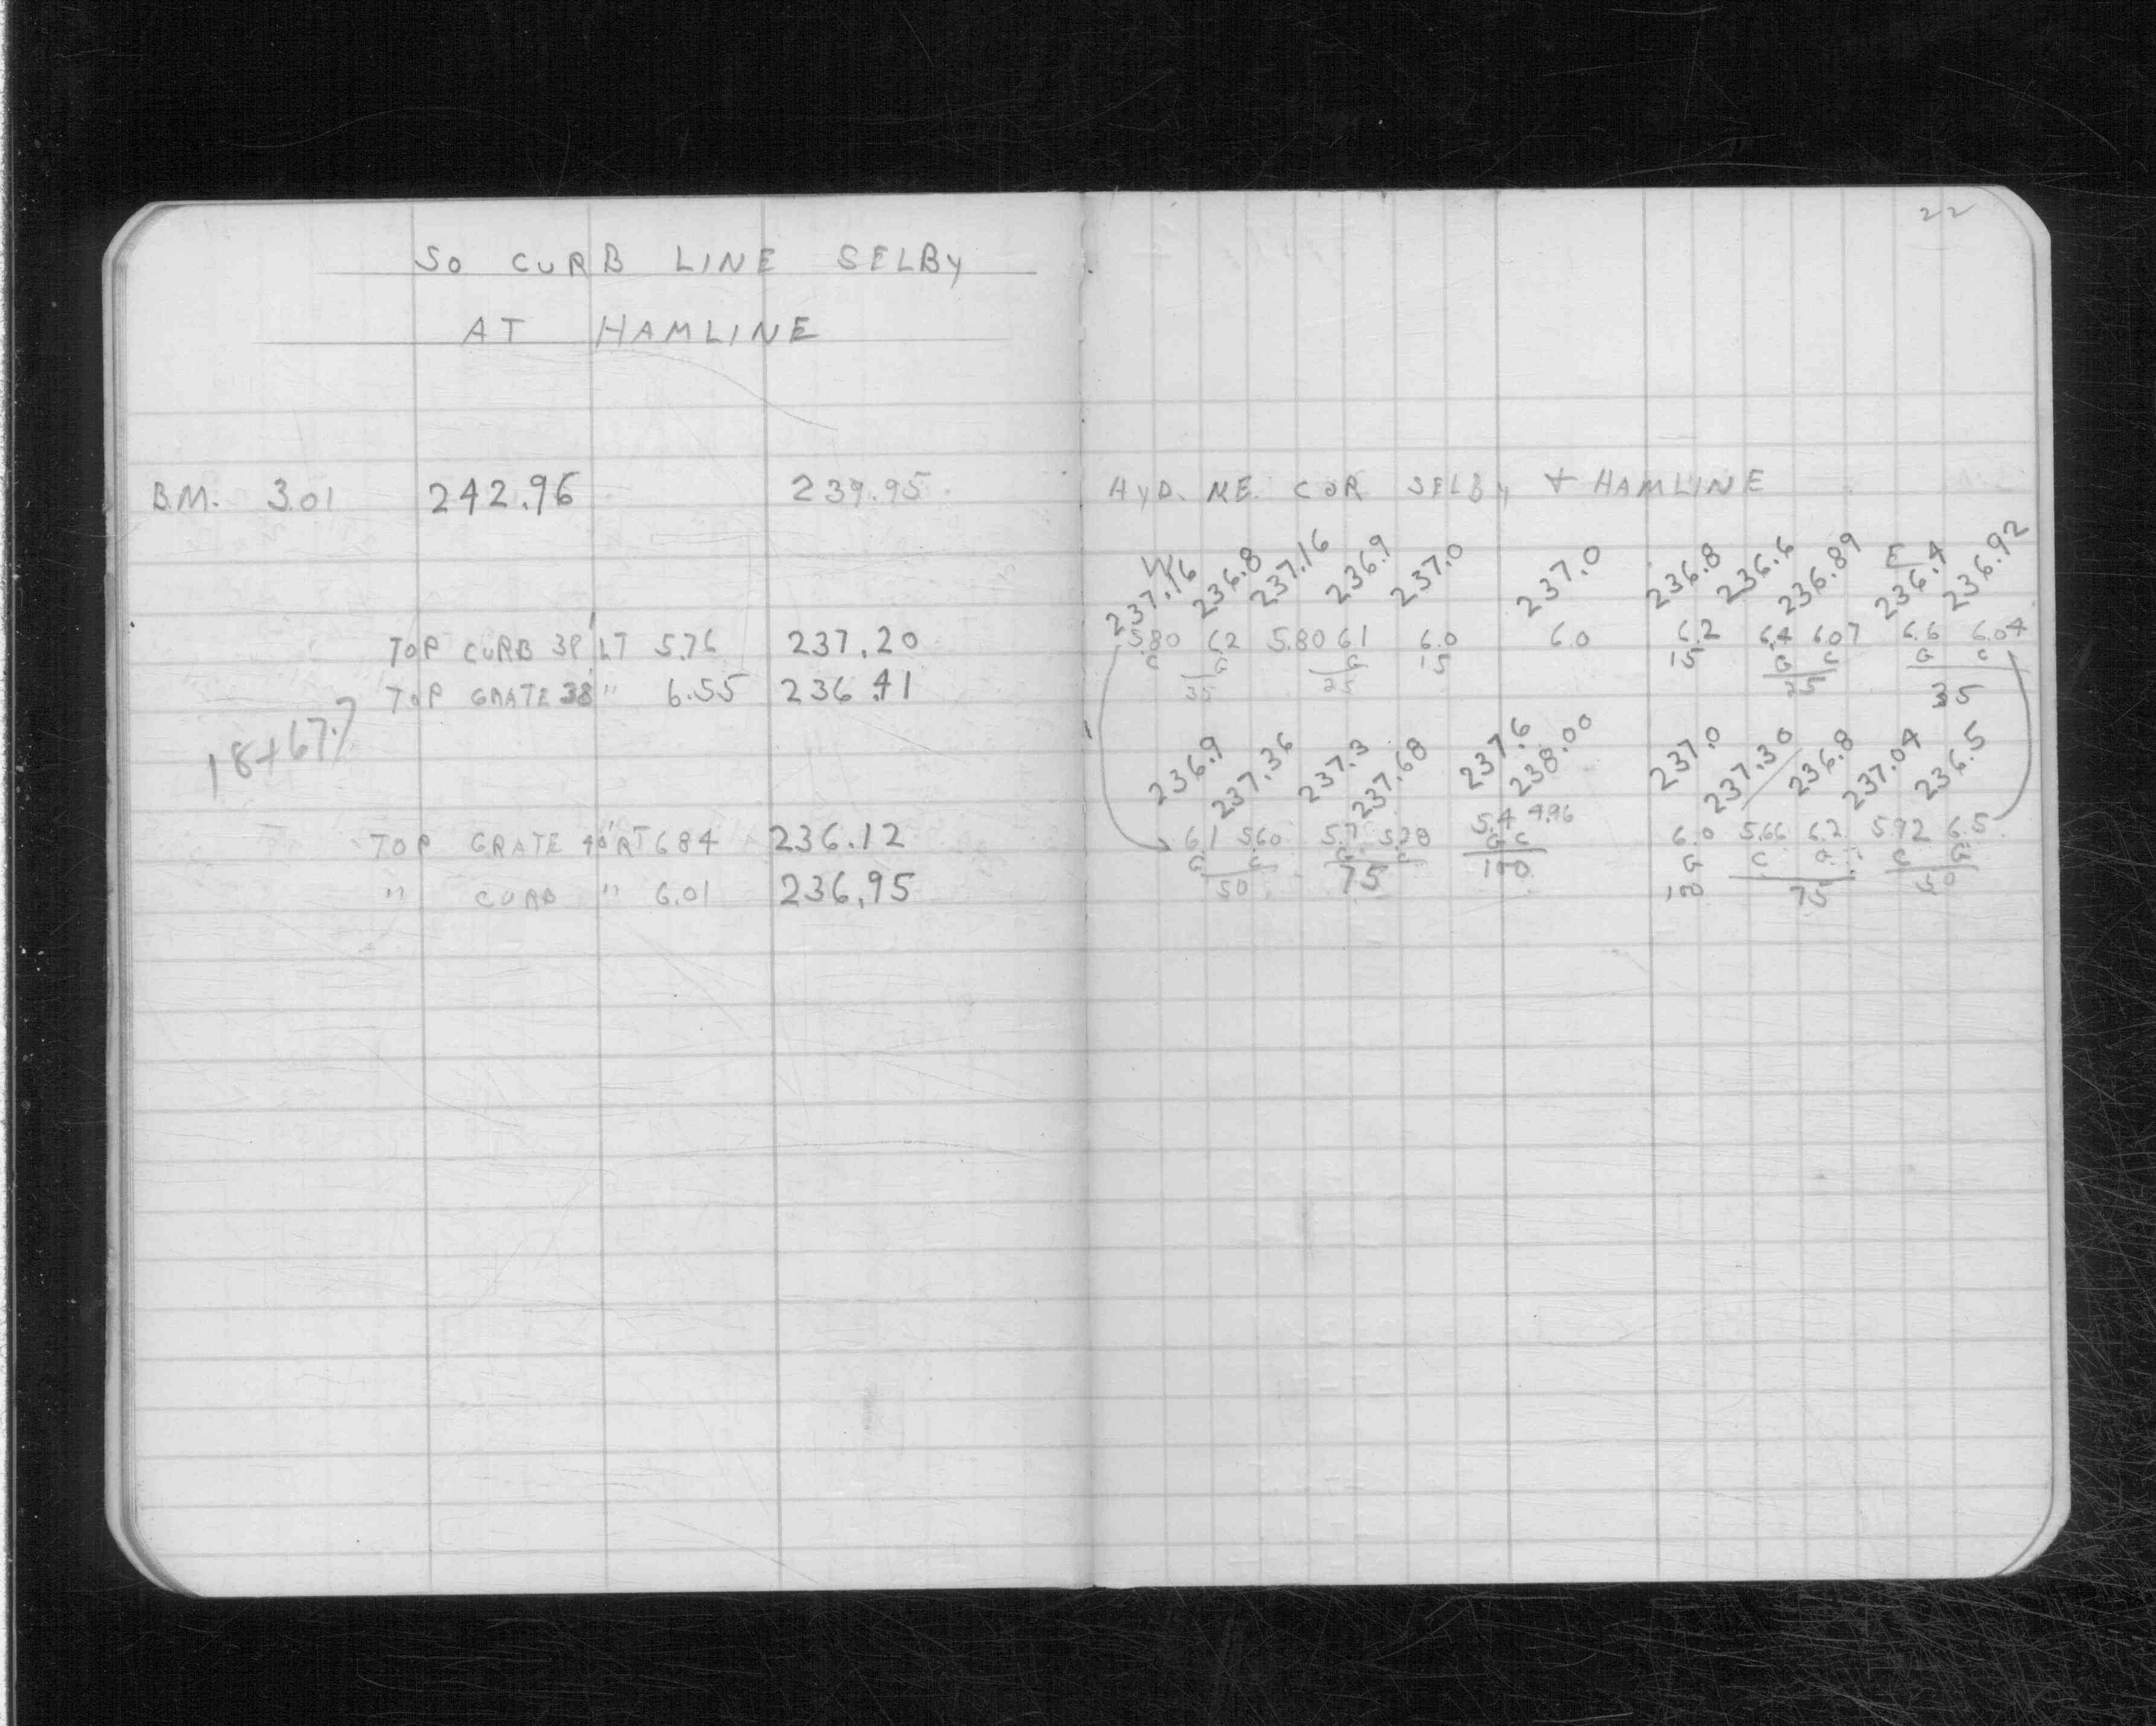 SO CURB LINE SELBY
AT HAMLINE
B.M. 3.01 242.96 239.95
TOP CURB 39' LT 5.76 237.20
TOP GRATE 38' " 6.55 236.41
18+67.7
TOP GRATE 40' RT 6.84 236.12
" CURB " 6.01 236.95
22
HYD. NE. COR SELBY + HAMLINE
W E
237.16 236.8 237.16 236.9 237.0 237.0 236.8 236.6 236.89 236.4 236.92
5.80 6.2 5.80 6.1 6.0 6.0 6.2 6.4 6.07 6.6 6.04
C G G 15 15 G C G C
35 25 25 35
236.9 237.36 237.3 237.68 237.6 238.00 237.0 237.30 236.8 237.04 236.5
6.1 5.60 5.7 5.28 5.4 4.96 6.0 5.66 6.2 5.92 6.5
G C G C G C G C G C G
50 75 100 100 75 50